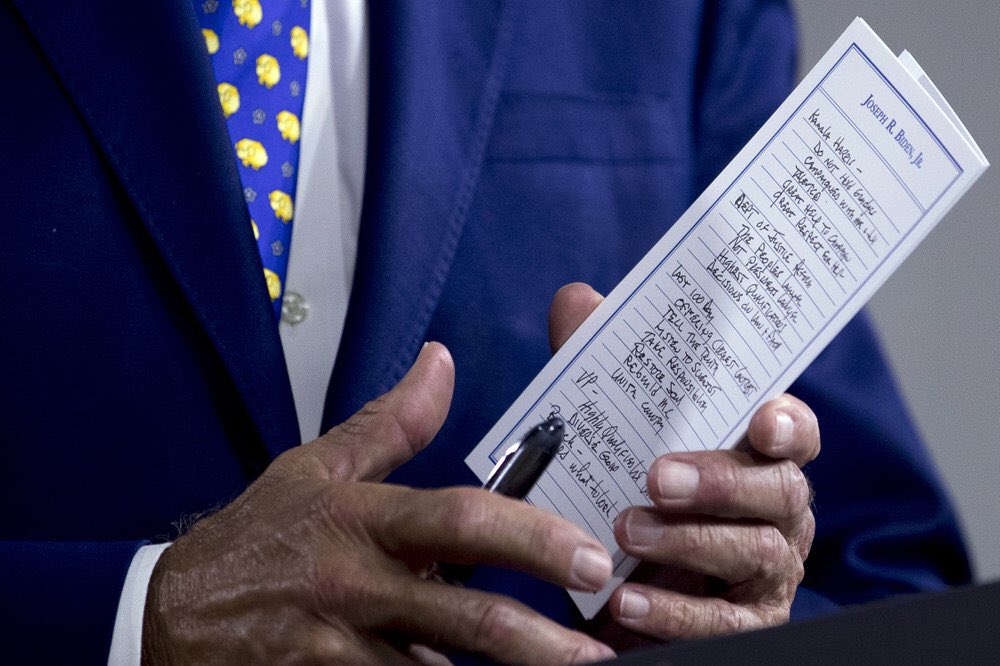 Joseph R. Biden, Jr.
Kamala Harris -
Do not hold grudges
Campaigned with me & Jill
Talented
Great help to campaign
Great respect for her
Dept of Justice
The Peoples lawyer
Not President lawyer
Highest Qualifications
Decisions on law & fact
Last 100 Day
Tell the truth
Listen to scientist
Take responsibility
Restore Soul
Rebuild MC
Unite country
VP -
Highly Qualified
Diverse Group
what to look